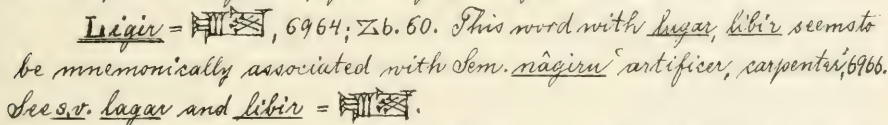 Ligir = , 6964; Zb. 60. This word with lugar, libir seems to
be mnemonically associated with Sem. nâgiru ‘artificer, carpenter’, 6966.
See s.v. lagar and libir = .